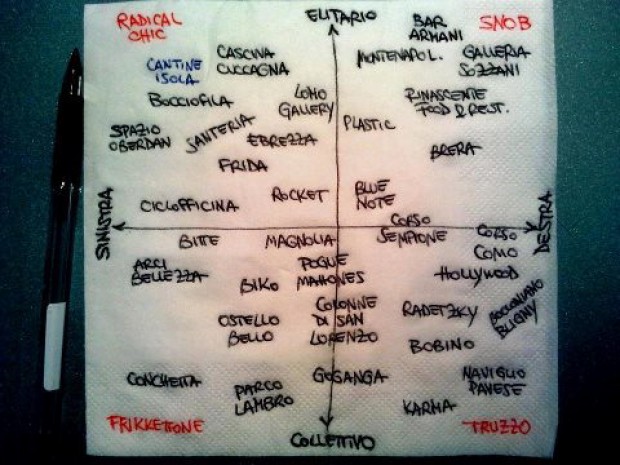 RADICAL
CHIC
ELITARIO
SNOB
BAR
ARMANI
CASCINA
CUCCAGNA
MONTENAPOL.
GALLERIA
SOZZANI
CANTINE
ISOLA
BOCCIOFILA
LOMO
GALLERY
RINASCENTE
FOOD & REST.
PLASTIC
SPAZIO
OBERDAN
SANTERIA
EBREZZA
BRERA
FRIDA
CICLOFFICINA
ROCKET
BLUE
NOTE
SINISTRA
DESTRA
CORSO
SEMPIONE
CORSO
COMO
BITTE
MAGNOLIA
ARCI
BELLEZZA
POGUE
MAHONES
HOLLYWOOD
BIKO
COLONNE
DI SAN
LORENZO
RADETZKY
BOCCONIANO
BLIGNY
OSTELLO
BELLO
BOBINO
CONCHETTA
PARCO
LAMBRO
GOGANGA
NAVIGLIO
PAVESE
KARMA
FRIKKETTONE
COLLETTIVO
TRUZZO